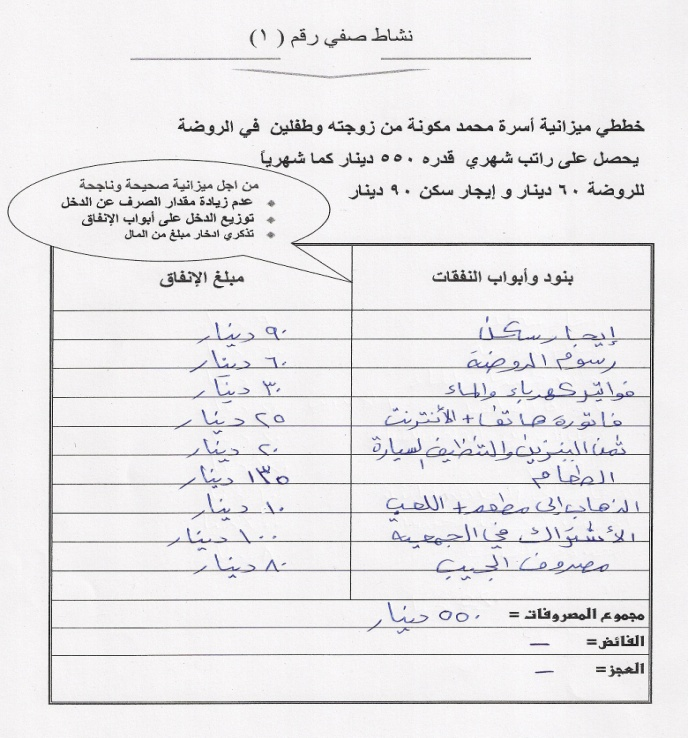 نشاط صفي رقم ( ١ )
خططي ميزانية أسرة محمد مكونة من زوجته وطفلين في الروضة
يحصل على راتب شهري قدره ٥٥٠ دينار كما شهرياً
للروضة ٦٠ دينار و إيجار سكن ٩٠ دينار
من اجل ميزانية صحيحة وناجحة
عدم زيادة مقدار الصرف عن الدخل
توزيع الدخل على أبواب الإنفاق
تذكري ادخار مبلغ من المال
بنود وأبواب النفقات مبلغ الإنفاق
إيجار سكن ٩٠ دينار
رسوم الروضة ٦٠ دينار
فواتير كهرباء والماء ٣٠ دينار
فاتورة هاتف + الأنترنت ٢٥ دينار
ثمن البنزين والتنظيف السيارة ٢٠ دينار
الطعام ١٣٥ دينار
الذهاب إلى مطعم + اللعب ١٠ دينار
الأشتراك في الجمعية ١٠٠ دينار
مصروف الجيب ٨٠ دينار
مجموع المصروفات = ٥٥٠ دينار
الفائض = –
العجز = –